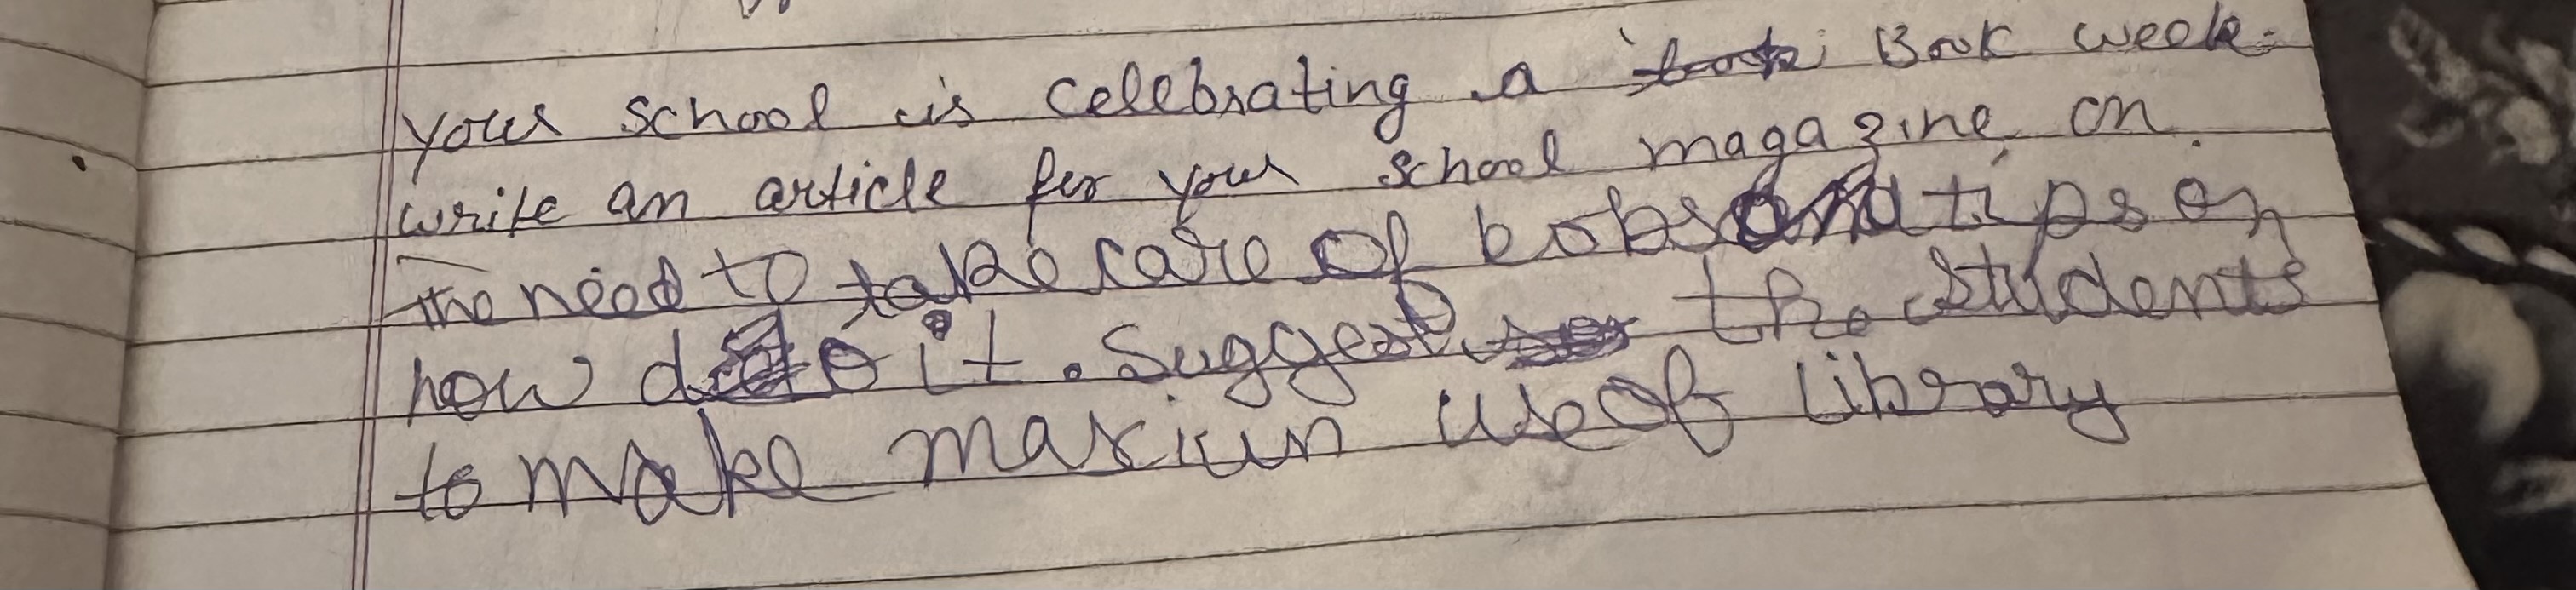 your school is celebrating a Book week.
write an article for your school magazine on
the need to take care of books and tips on
how do it. Suggest the students
to make maxium use of library